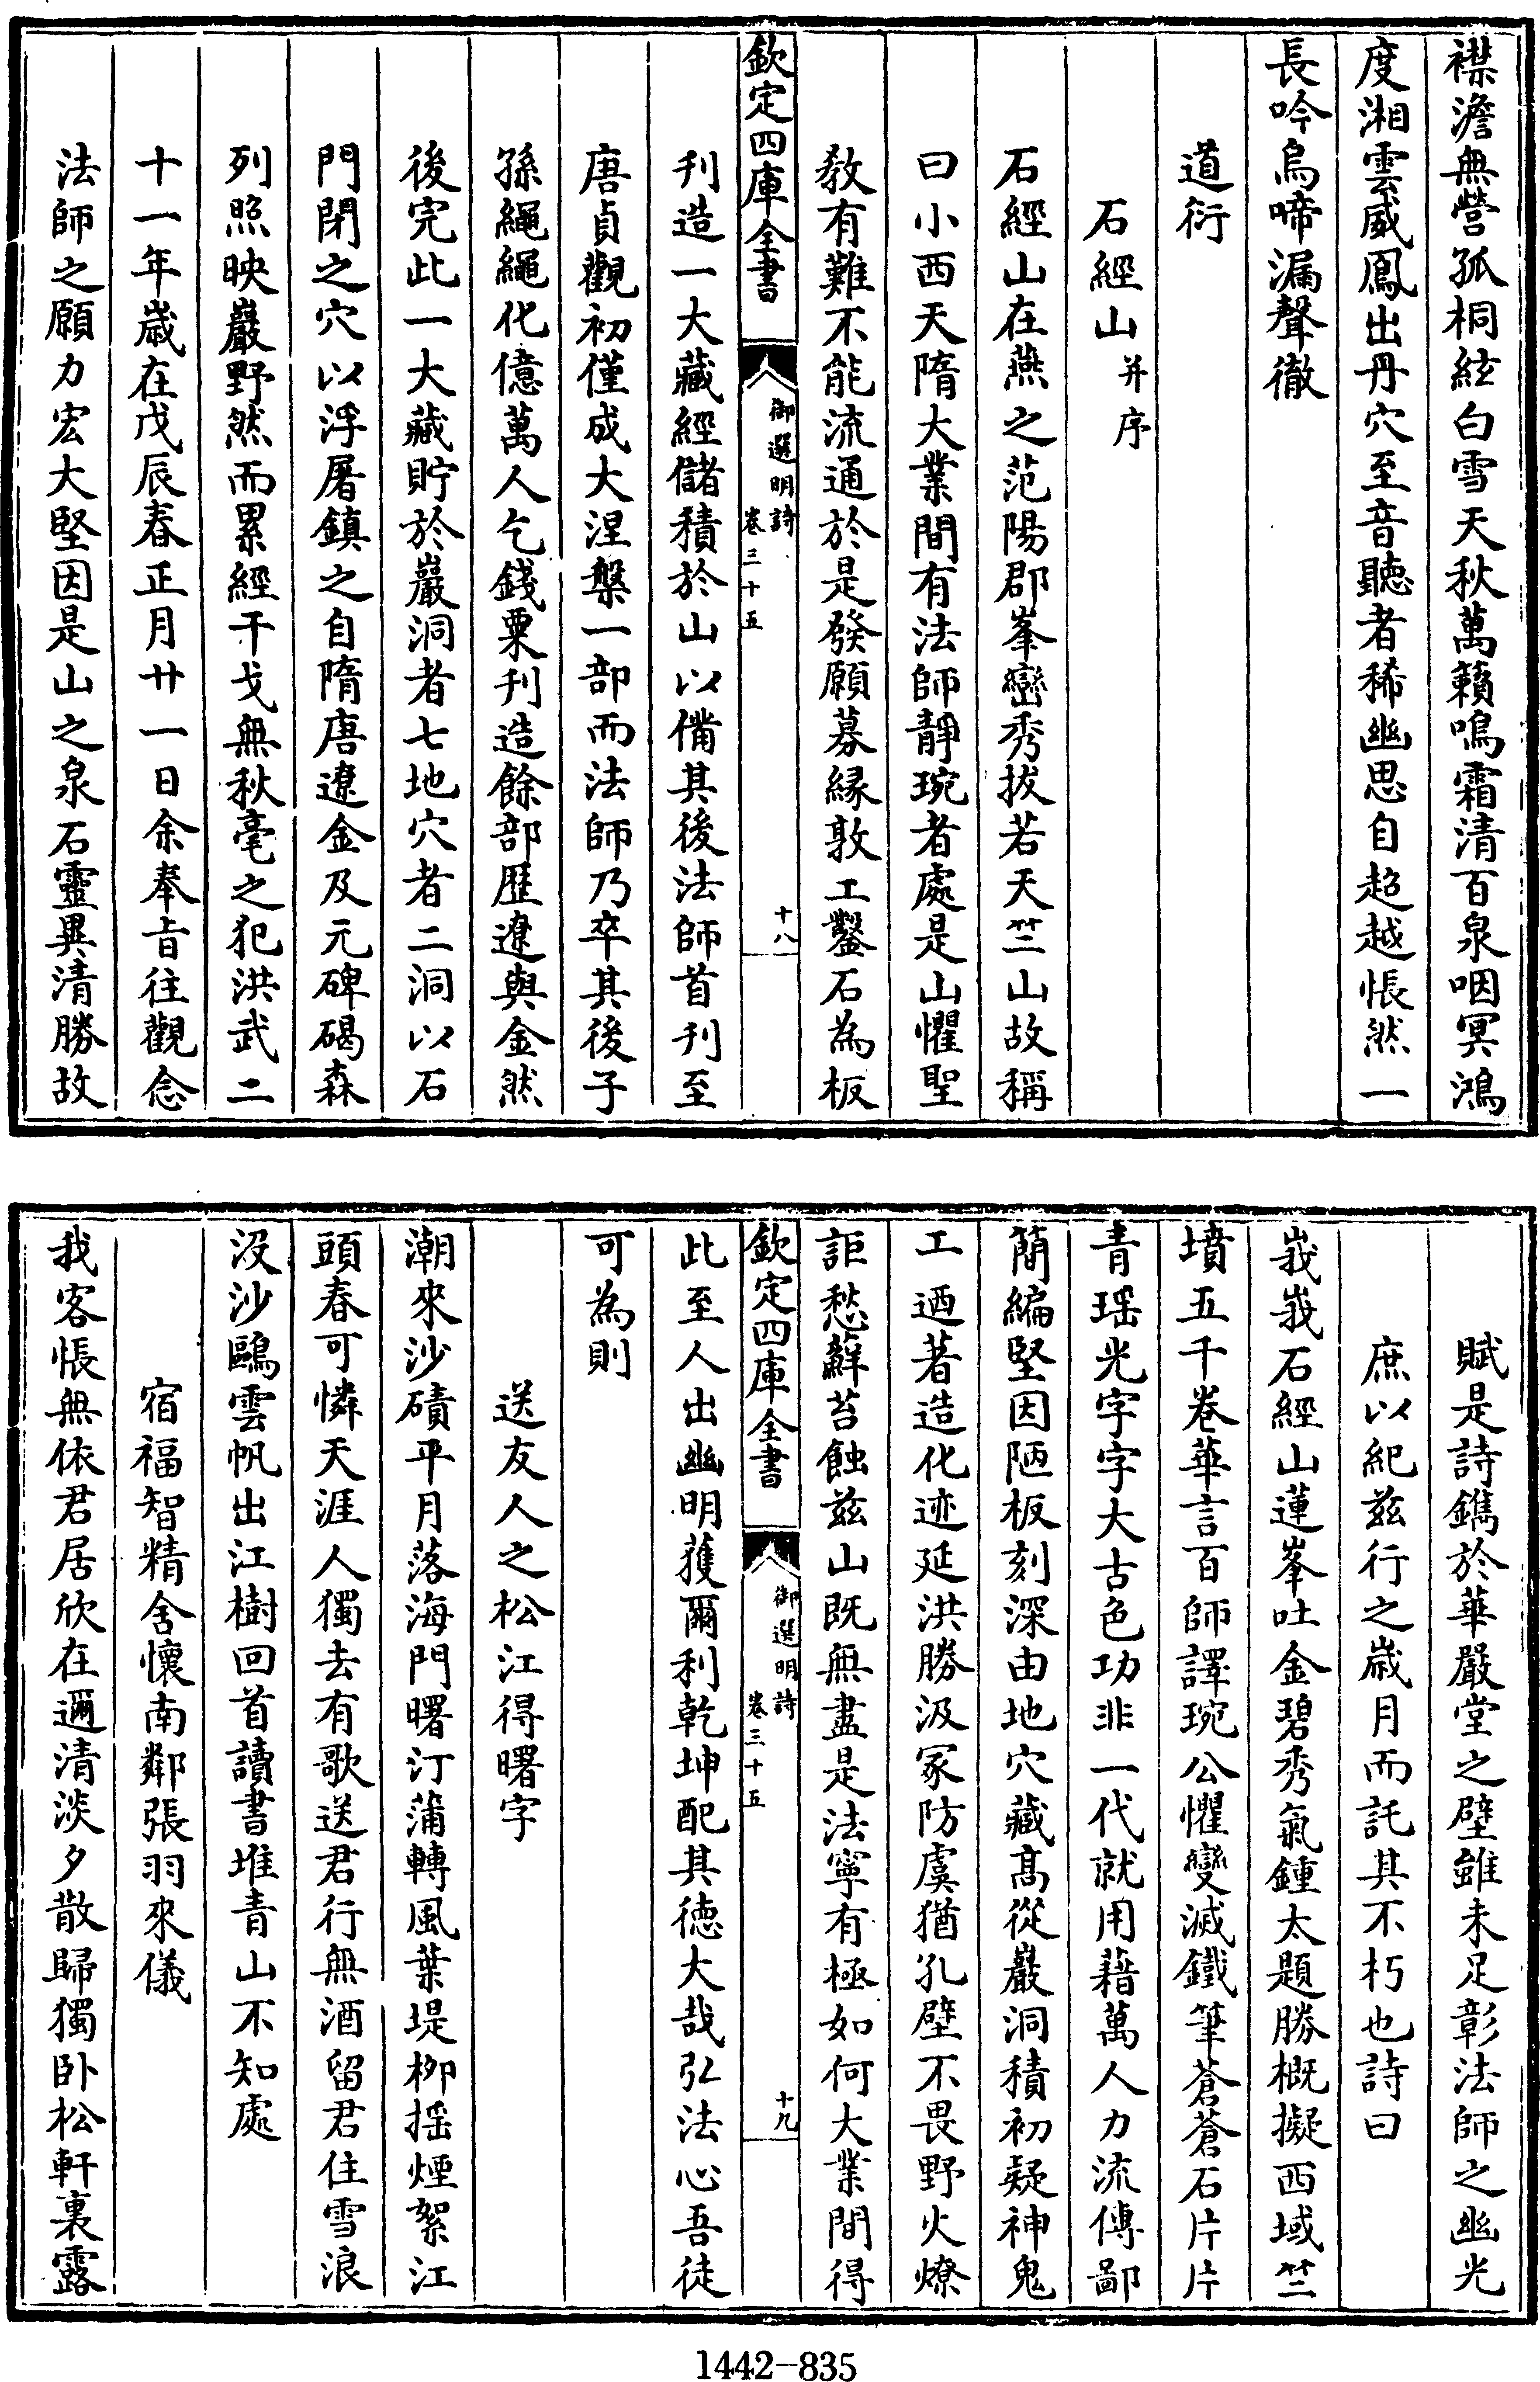 襟澹無營孤桐絃白雪天秋萬籟鳴霜清百泉咽冥鴻
度湘雲威鳳出丹穴至音聽者稀幽思自超越悵然一
長吟烏啼漏聲徹
道衍
石經山并序
石經山在燕之范陽郡峯巒秀拔若天竺山故稱
曰小西天隋大業間有法師靜琬者處是山懼聖
教有難不能流通於是發願募縁敦工鑿石為板
欽定四庫全書
御選明詩
卷三十五
十八
刋造一大藏經儲積於山以備其後法師首刋至
唐貞觀初僅成大涅槃一部而法師乃卒其後子
孫繩繩化億萬人乞錢粟刋造餘部歴遼與金然
後完此一大藏貯於巖洞者七地穴者二洞以石
門閉之穴以浮屠鎮之自隋唐遼金及元碑碣森
列照映巖野然而累經干戈無秋毫之犯洪武二
十一年嵗在戊辰春正月廿一日余奉㫖往觀念
法師之願力宏大堅因是山之泉石靈異清勝故
賦是詩鐫於華嚴堂之壁雖未足彰法師之幽光
庶以紀兹行之嵗月而託其不朽也詩曰
峩峩石經山蓮峯吐金碧秀氣鍾太題勝概擬西域竺
墳五千卷華言百師譯琬公懼變滅鐵筆蒼蒼石片片
青瑶光字字大古色功非一代就用藉萬人力流傳鄙
簡編堅因陋板刻深由地穴藏高從巖洞積初疑神鬼
工迺著造化迹延洪勝汲冢防虞猶孔壁不畏野火燎
詎愁蘚苔蝕兹山既無盡是法寧有極如何大業間得
欽定四庫全書
御選明詩
卷三十五
十九
此至人出幽明蒦爾利乾坤配其徳大哉弘法心吾徒
可為則
送友人之松江得曙字
潮來沙磧平月落海門曙汀蒲轉風葉堤栁揺煙絮江
頭春可憐天涯人獨去有歌送君行無酒留君住雪浪
没沙鷗雲帆出江樹回首讀書堆青山不知處
宿福智精舍懷南鄰張羽來儀
我客悵無依君居欣在邇清淡夕散歸獨卧松軒裏露